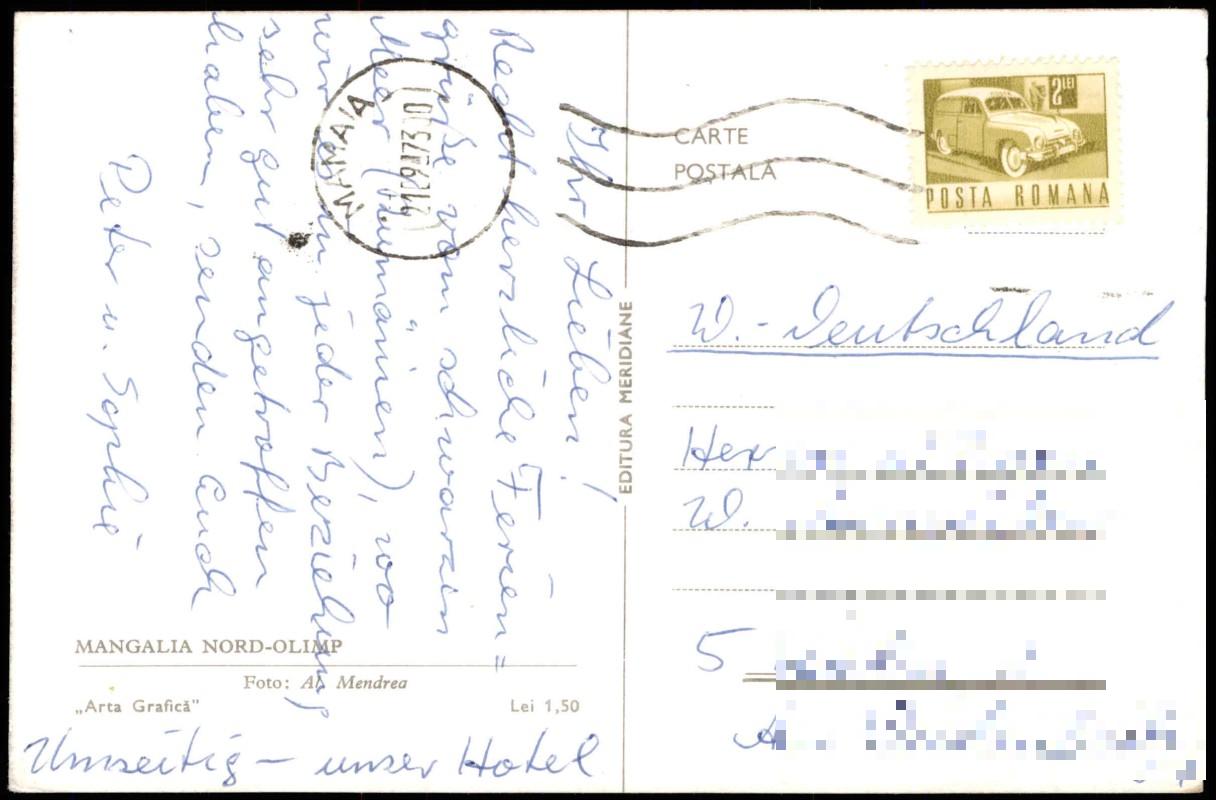 Ihr Lieben!
Recht herzliche Ferien=
grüße vom schwarzen
Meer (Rumänien), wo
wir es in jeder Beziehung
sehr gut angetroffen
haben, senden Euch
Peter u. Sophie
MANGALIA NORD-OLIMP
Foto: Al. Mendrea
„Arta Grafică” Lei 1,50
Umseitig – unser Hotel
EDITURA MERIDIANE
MAMAIA
CARTE
POȘTALĂ
2 LEI
POSTA ROMANA
W.-Deutschland
Herr
W.
5